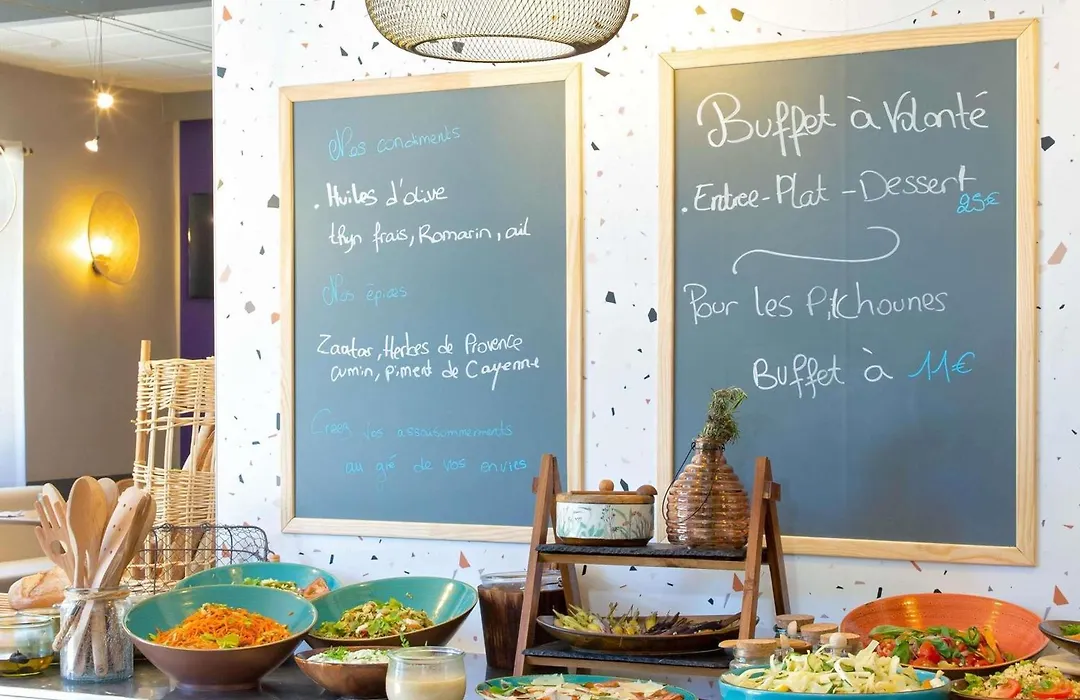 Nos condiments
. Huiles d'olive
thyn frais, Romarin, ail
Nos épices
Zaatar, Herbes de Provence
cumin, piment de Cayenne
Créez vos assaisonnements
au gré de vos envies
Buffet à Volonté
. Entrée - Plat - Dessert
25€
Pour les Pitchounes
Buffet à 11€